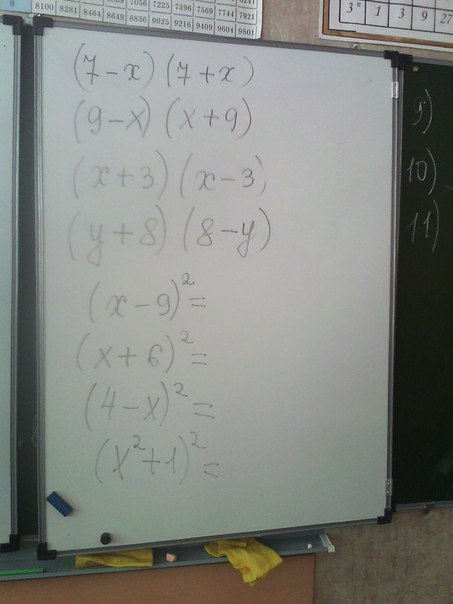 8100 8281 8464 8649 8836 9025 9216 9409 9604 9801
7056 7225 7396 7569 7744 7921
3ⁿ 1 3 9 27
(7-x) (7+x)
(9-x) (x+9)
(x+3) (x-3)
(y+8) (8-y)
(x-9)²=
(x+6)²=
(4-x)²=
(x²+1)²=
9)
10)
11)